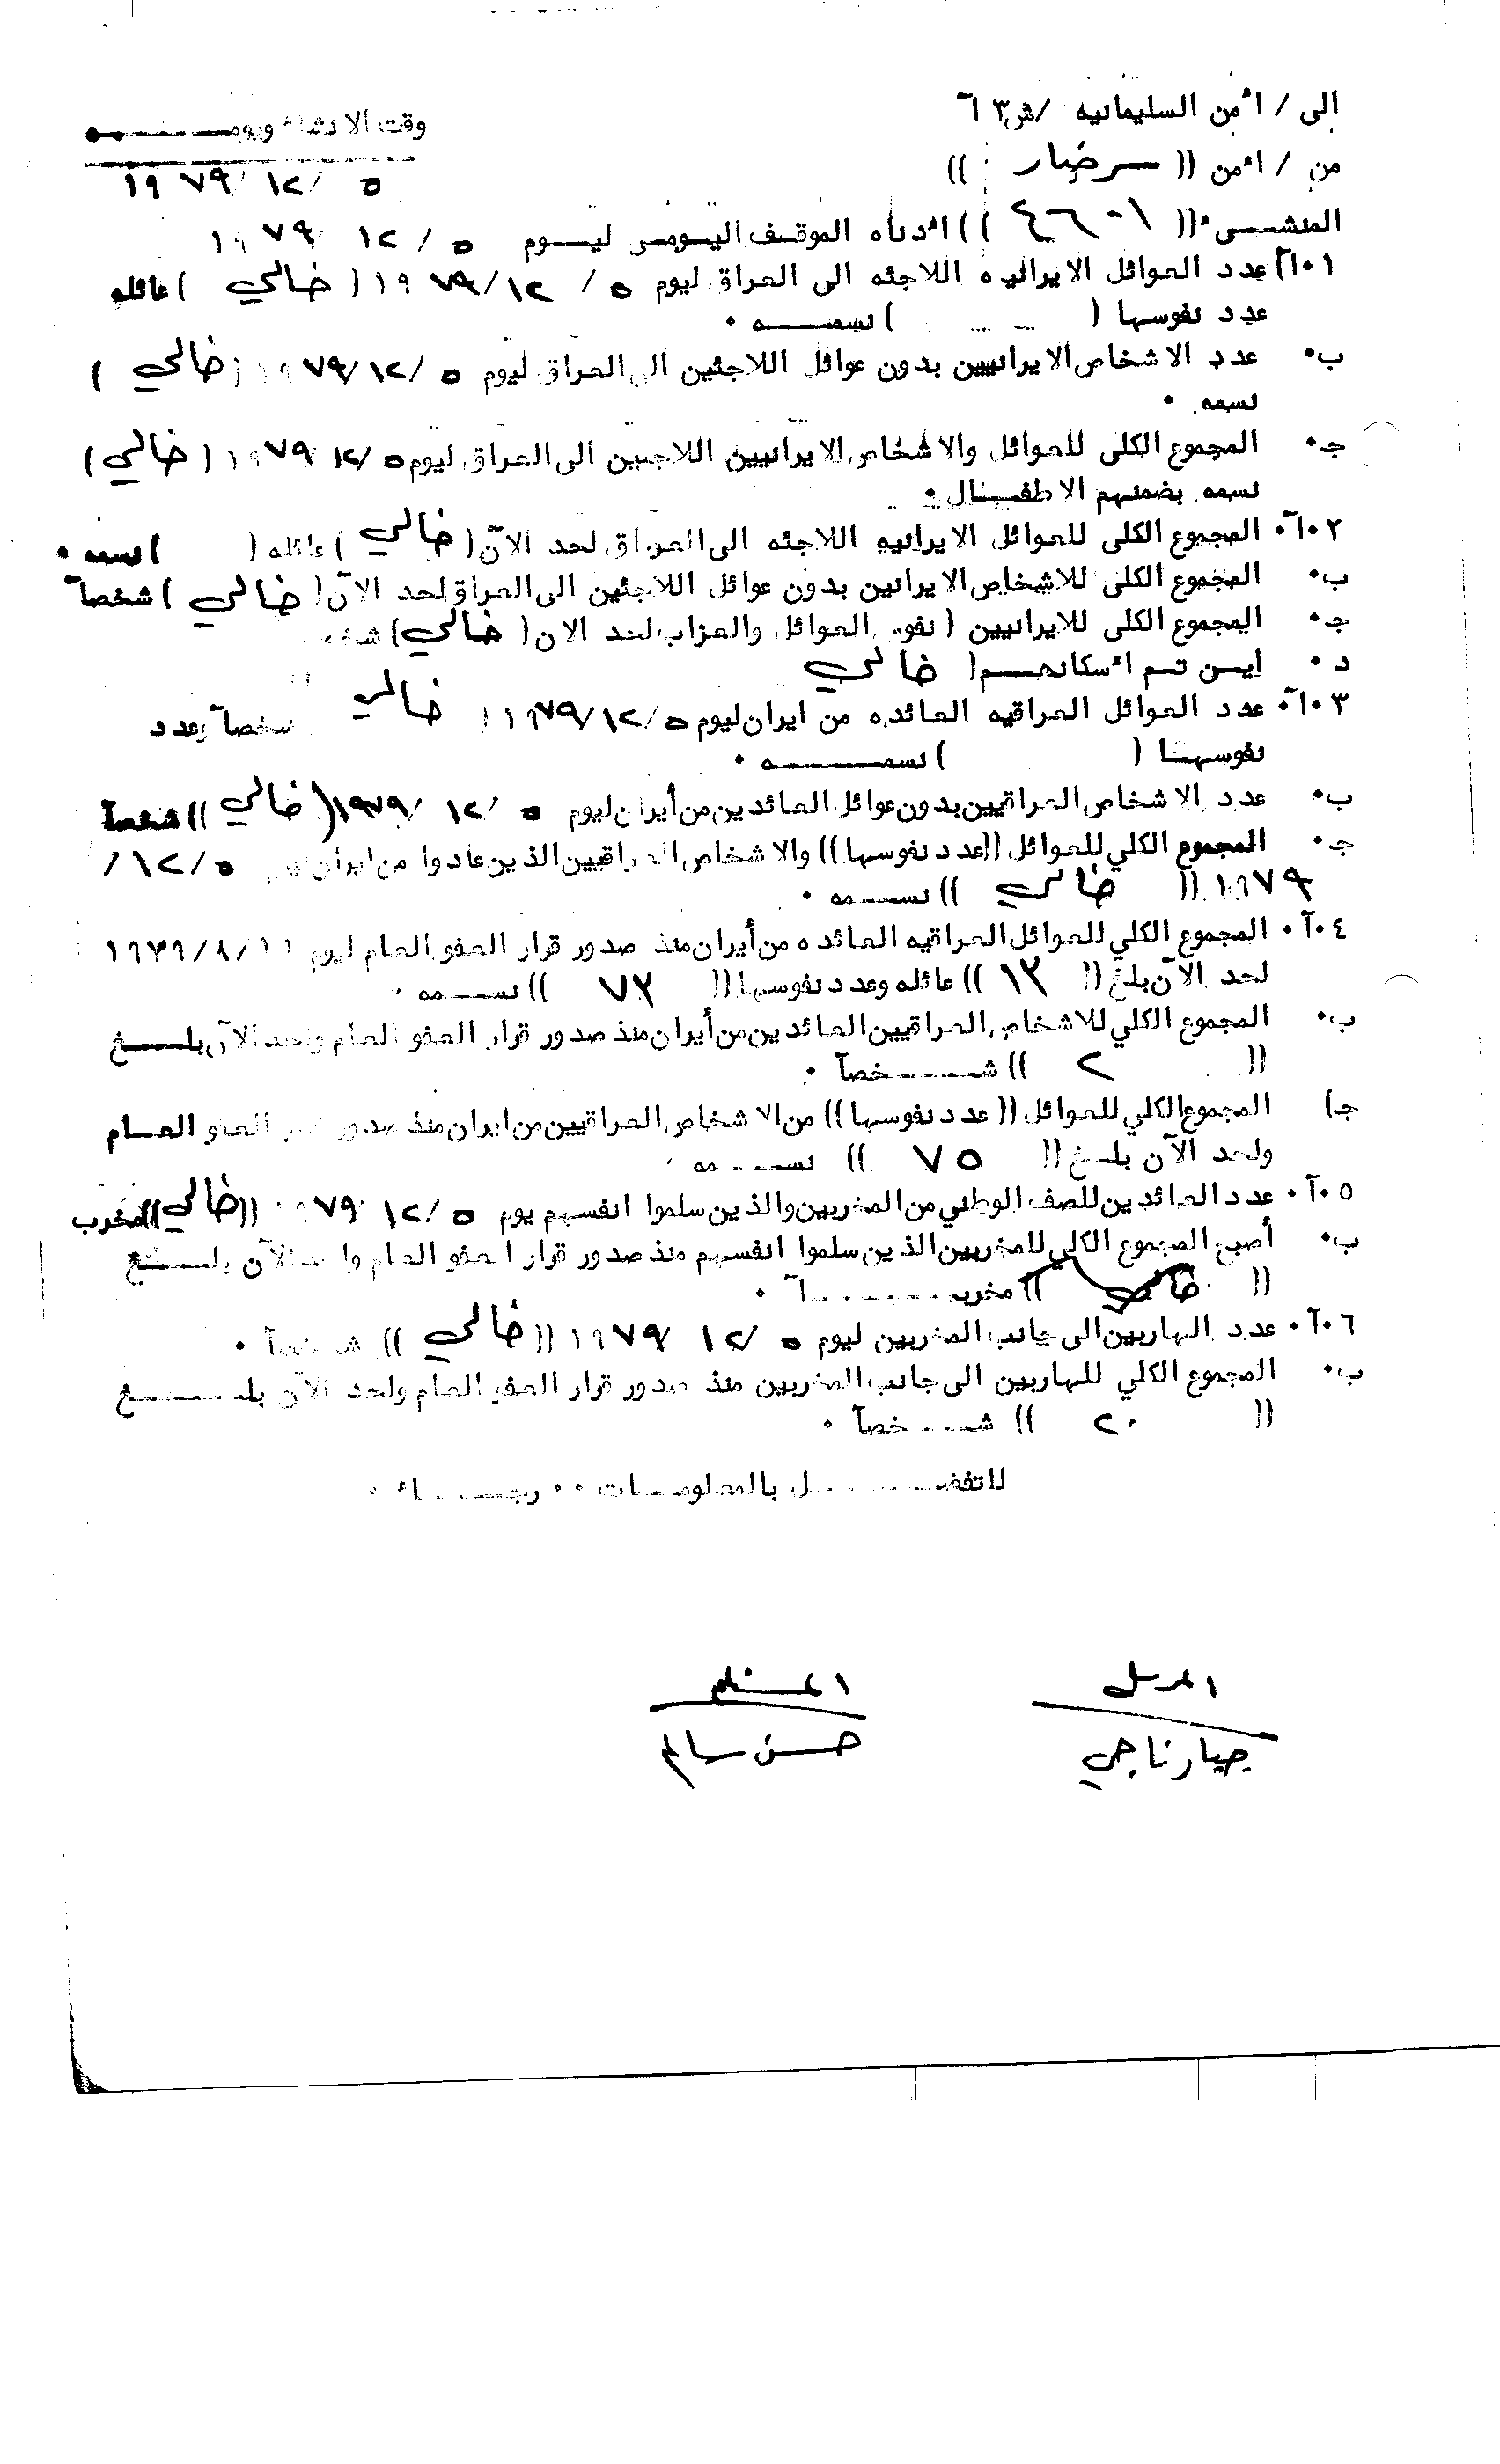 الى / أمن السليمانيه / ش٣ أ
وقت الانشاء ويوم
من / أمن (( سرچنار ))
٥ / ١٢ / ١٩٧٩
المنشىء (( ٤٦٠١ )) أدناه الموقف اليومي ليوم ٥ / ١٢ ١٩٧٩
١٠أ عدد العوائل الايرانيه اللاجئه الى العراق ليوم ٥ / ١٢ / ١٩٧٩ ( خالي ) عائله
عدد نفوسها ( ) نسمه ٠
ب٠ عدد الاشخاص الايرانيين بدون عوائل اللاجئين الى العراق ليوم ٥ / ١٢ / ١٩٧٩ ( خالي )
نسمه ٠
جـ٠ المجموع الكلي للعوائل والاشخاص الايرانيين اللاجئين الى العراق ليوم ٥ / ١٢ ١٩٧٩ ( خالي )
نسمه بضمنهم الاطفال ٠
٢٠أ٠ المجموع الكلي للعوائل الايرانيه اللاجئه الى العراق لحد الآن ( خالي ) عائله ( ) نسمه ٠
ب٠ المجموع الكلي للاشخاص الايرانين بدون عوائل اللاجئين الى العراق لحد الآن ( خالي ) شخصآ
جـ٠ المجموع الكلي للايرانيين ( نفوس العوائل والعزاب لحد الان ( خالي )
د ٠ اين تم أسكانهم ( خالي
٣٠أ٠ عدد العوائل العراقيه العائده من ايران ليوم ٥ / ١٢ / ١٩٧٩ ( خالي شخصآ وعدد
نفوسهنا ( ) نسمه ٠
ب٠ عدد الاشخاص العراقيين بدون عوائل العائدين من أيران ليوم ٥ / ١٢ / ١٩٧٩ ( خالي )) شخصآ
جـ٠ المجموع الكلي للعوائل (( عدد نفوسها )) والاشخاص العراقيين الذين عادوا من ايران ٥ / ١٢ /
١٩٧٩ (( خالي )) نسمه ٠
٤٠أ٠ المجموع الكلي للعوائل العراقيه العائده من أيران منذ صدور قرار العفو العام ليوم ١٦ / ٨ / ١٩٧٩
لحد الآن بلغ (( ١٣ )) عائله وعدد نفوسها (( ٧٣ )) نسمه ٠
ب٠ المجموع الكلي للاشخاص العراقيين العائدين من أيران منذ صدور قرار العفو العام ولحد الآن بلغ
(( ٢ )) شخصآ ٠
جـ) المجموع الكلي للعوائل (( عدد نفوسها )) من الاشخاص العراقيين من ايران منذ صدور العفو العام
ولحد الآن بلغ (( ٧٥ )) نسمه
٥٠أ٠ عدد العائدين للصف الوطني من المخربين والذين سلموا انفسهم يوم ٥ / ١٢ ١٩٧٩ (( خالي )) مخرب
ب٠ أصبح المجموع الكلي للمخربين الذين سلموا انفسهم منذ صدور قرار العفو العام ولحد الآن بلغ
(( خالي )) مخربآ ٠
٦٠أ٠ عدد الهاربين الى جانب المخربين ليوم ٥ / ١٢ ١٩٧٩ (( خالي )) شخصآ ٠
ب٠ المجموع الكلي للهاربين الى جانب المخربين منذ صدور قرار العفو العام ولحد الآن بلغ
(( ٢٠ )) شخصآ ٠
للتفضل بالمعلومات ٠٠ رجاء ٠
المرسل
المستلم
جبار ناجي
حسن سالم